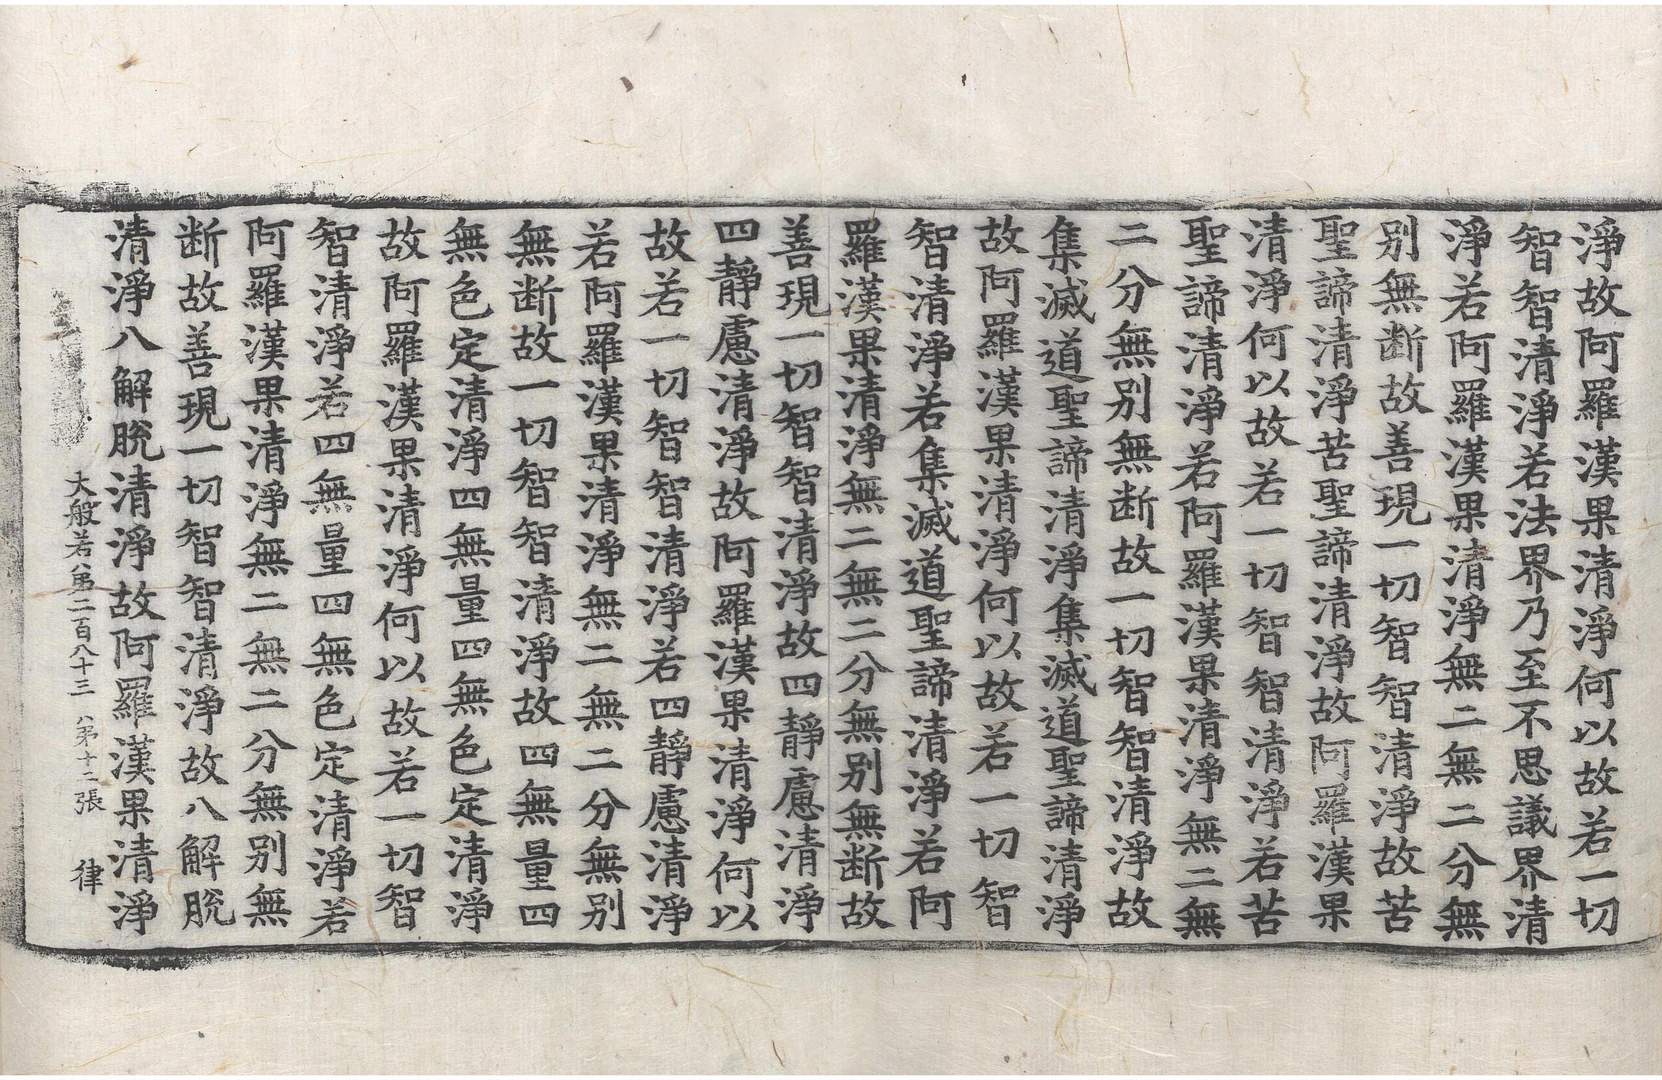 淨故阿羅漢果清淨何以故若一切
智智清淨若法界乃至不思議界清
淨若阿羅漢果清淨無二無二分無
別無断故善現一切智智清淨故苦
聖諦清淨苦聖諦清淨故阿羅漢果
清淨何以故若一切智智清淨若苦
聖諦清淨若阿羅漢果清淨無二無
二分無別無断故一切智智清淨故
集滅道聖諦清淨集滅道聖諦清淨
故阿羅漢果清淨何以故若一切智
智清淨若集滅道聖諦清淨若阿
羅漢果清淨無二無二分無別無断故
善現一切智智清淨故四靜慮清淨
四靜慮清淨故阿羅漢果清淨何以
故若一切智智清淨若四靜慮清淨
若阿羅漢果清淨無二無二分無別
無断故一切智智清淨故四無量四
無色定清淨四無量四無色定清淨
故阿羅漢果清淨何以故若一切智
智清淨若四無量四無色定清淨若
阿羅漢果清淨無二無二分無別無
断故善現一切智智清淨故八解脫
清淨八解脫清淨故阿羅漢果清淨
大般若第二百八十三 第十二張 律